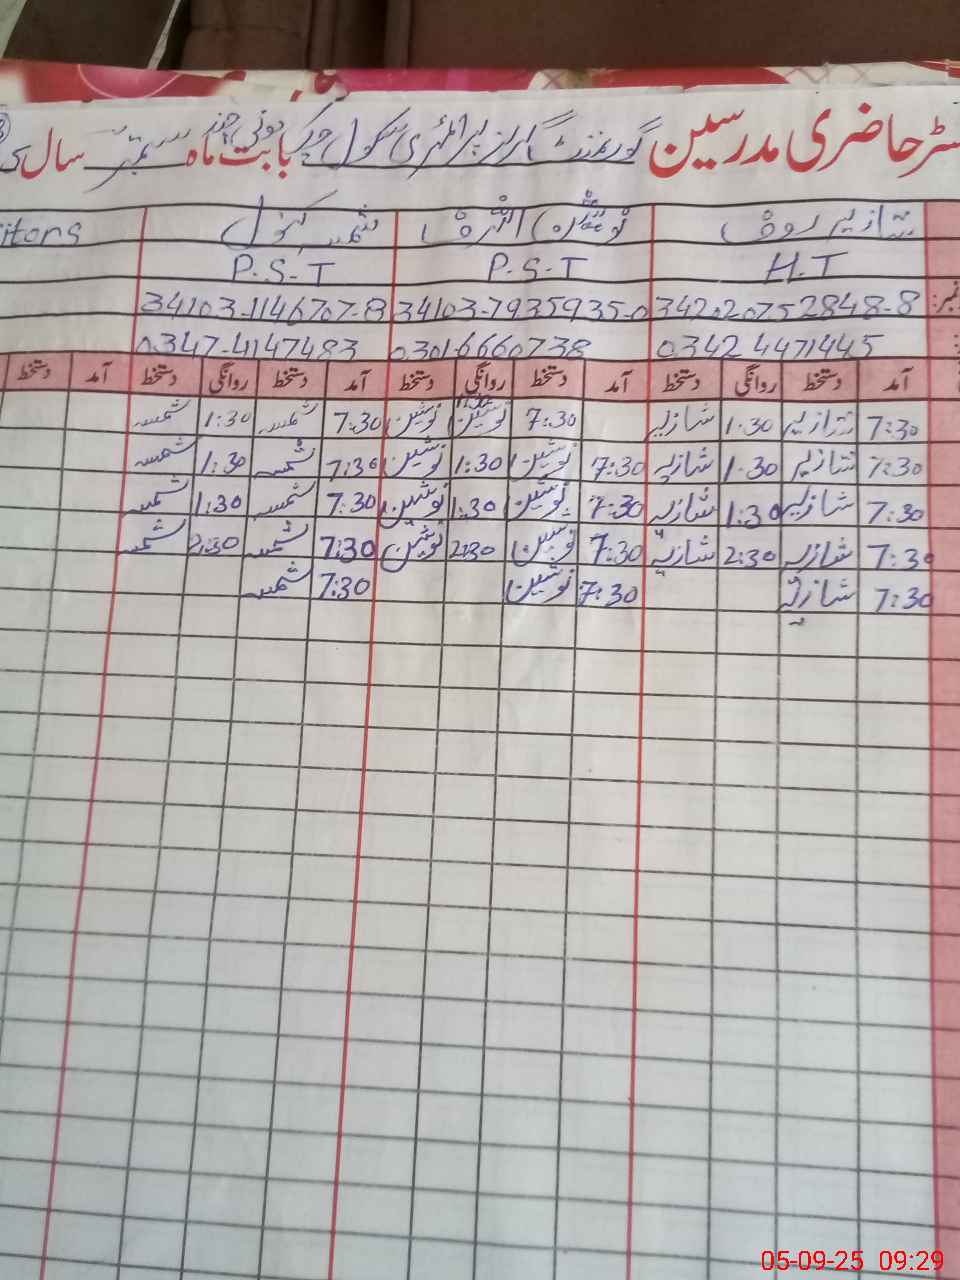 سٹر حاضری مدرسین گورنمنٹ گرلز پرائمری سکول چک بابت ماہ ستمبر سال
شازیہ روف نوشین اشرف شمسہ کنول itors
H.T P.S.T P.S.T
نمبر: 34202-0752848-8 34103-7935935-0 34103-1146707-8
0342 4471445 0301-6660738 0347-4147483
آمد دستخط روانگی دستخط آمد دستخط روانگی دستخط آمد دستخط روانگی دستخط آمد دستخط
7:30 شازیہ 1:30 شازیہ 7:30 نوشین 1:30 نوشین 7:30 شمسہ 1:30 شمسہ
7:30 شازیہ 1:30 شازیہ 7:30 نوشین 1:30 نوشین 7:30 شمسہ 1:30 شمسہ
7:30 شازیہ 1:30 شازیہ 7:30 نوشین 1:30 نوشین 7:30 شمسہ 1:30 شمسہ
7:30 شازیہ 2:30 شازیہ 7:30 نوشین 2:30 نوشین 7:30 شمسہ 2:30 شمسہ
7:30 شازیہ 7:30 نوشین 7:30 شمسہ
05-09-25 09:29